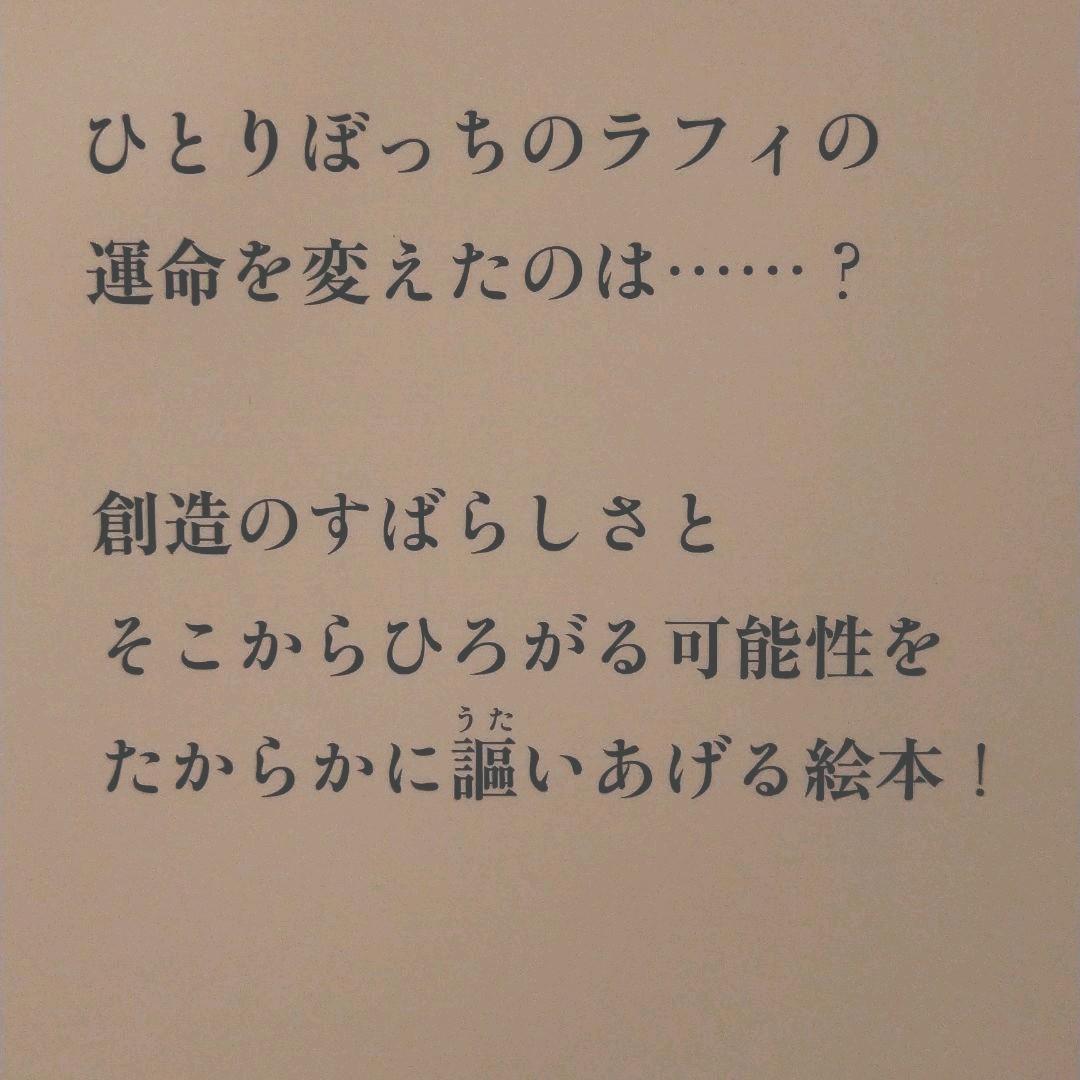 ひとりぼっちのラフィの
運命を変えたのは……？
創造のすばらしさと
そこからひろがる可能性を
うた
たからかに謳いあげる絵本！